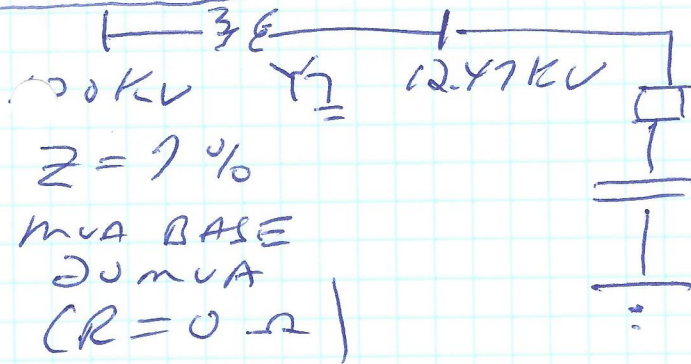 00 KV Y 12.47 KV
Z = 7 %
MVA BASE
20 MVA
(R = 0 Ω)